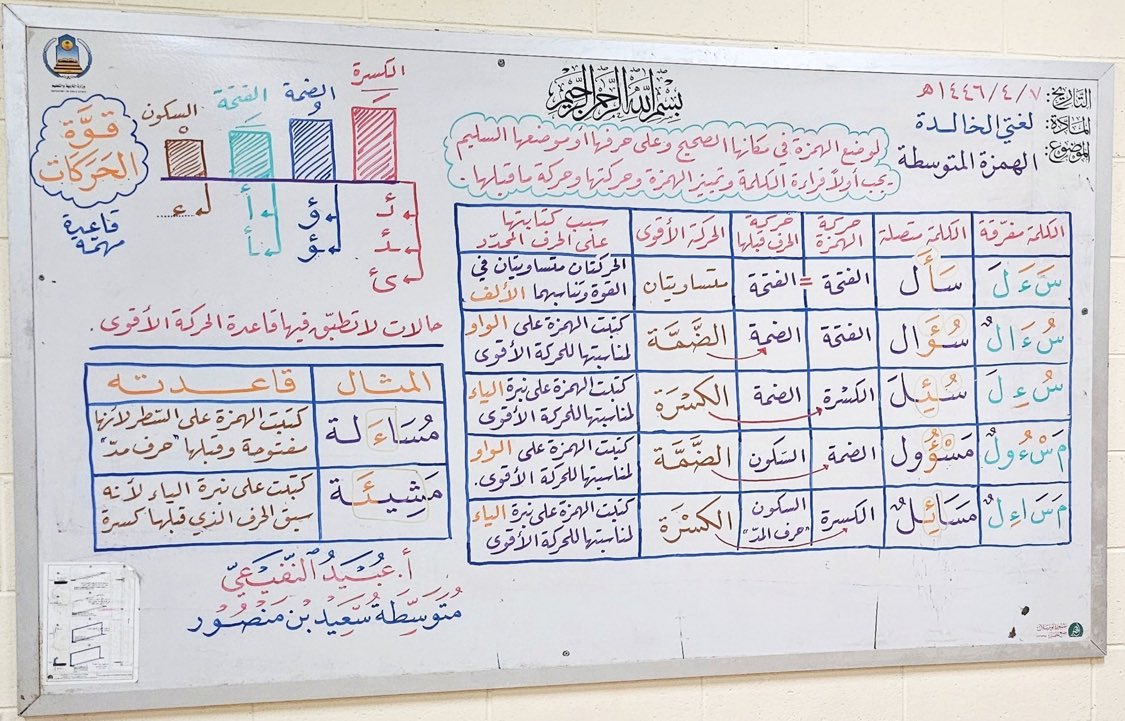 بسم الله الرحمن الرحيم
التاريخ: ٧/٤/١٤٤٦هـ
المادة: لغتي الخالدة
الموضوع: الهمزة المتوسطة
لوضع الهمزة في مكانها الصحيح وعلى حرفها أو موضعها السليم
يجب أولاً قراءة الكلمة وتمييز الهمزة وحركتها وحركة ما قبلها.
الكلمة مفرّقة | الكلمة متصلة | حركة الهمزة | حركة الحرف قبلها | الحركة الأقوى | سبب كتابتها على الحرف المحدّد
سَءَلَ | سَأَل | الفتحة = | الفتحة | متساويتان | الحركتان متساويتان في القوة وتناسبهما الألف
سُءَالٌ | سُؤَال | الفتحة | الضمة | الضَّمَّة | كتبت الهمزة على الواو لمناسبتها للحركة الأقوى
سُءِلَ | سُئِلَ | الكسْرة | الضمة | الكسْرَة | كتبت الهمزة على نبرة الياء لمناسبتها للحركة الأقوى
مَسْءُولٌ | مَسْؤُول | الضمة | السكون | الضَّمَّة | كتبت الهمزة على الواو لمناسبتها للحركة الأقوى.
مَسَاءِلٌ | مَسَائِلٌ | الكسرة | السكون "حرف المدّ" | الكسْرَة | كتبت الهمزة على نبرة الياء لمناسبتها للحركة الأقوى
وزارة التربية والتعليم
قوَّة
الحَرَكات
قاعدة
مهمة
الكسرة
الضمة
الفتحة
السكون
ئـ
ـئـ
ـئ
ؤ
ـؤ
أ
ـأ
ء
حالات لا تطبّق فيها قاعدة الحركة الأقوى.
المثال | قاعدته
مُسَاءَلة | كتبت الهمزة على السطر لأنها مفتوحة وقبلها "حرف مدّ"
مَشِيئَة | كتبت على نبرة الياء لأنه سبق الحرف الذي قبلها كسرة
أ. عُبَيدُ النّفَيعيّ
مُتوَسِّطَة سَّعِيد بْن مَنصُور